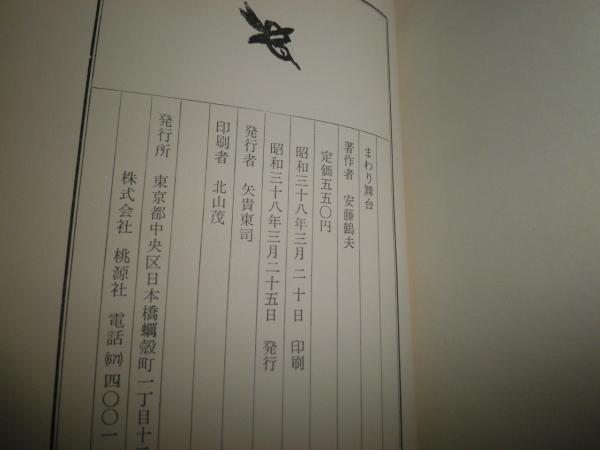 まわり舞台
著作者 安藤鶴夫
定価五五〇円
昭和三十八年三月二十日 印刷
昭和三十八年三月二十五日 発行
発行者 矢貴東司
印刷者 北山茂
発行所 東京都中央区日本橋蠣殻町一丁目十二
株式会社 桃源社 電話(671)四〇〇一